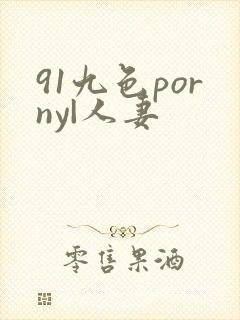 91九色por
nyl人妻
零售果酒